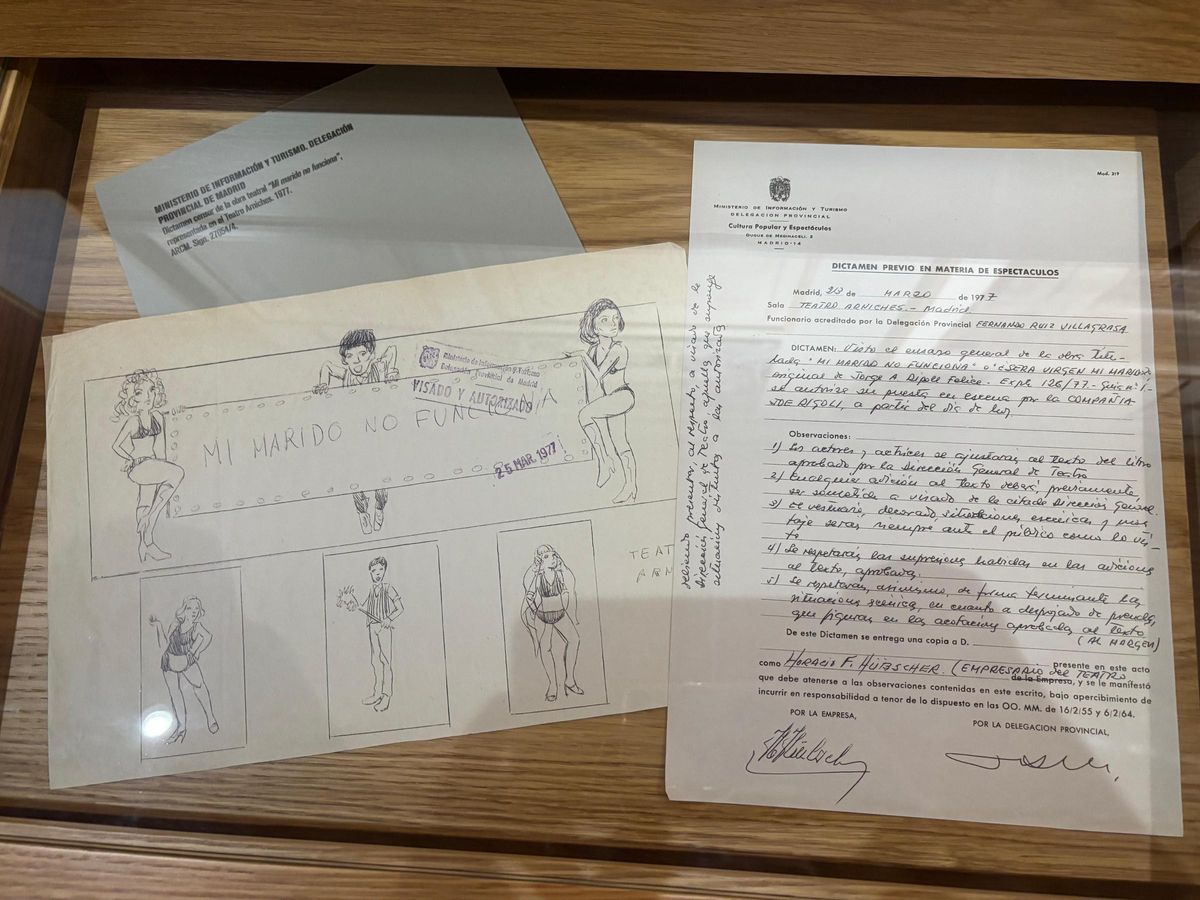 MINISTERIO DE INFORMACIÓN Y TURISMO. DELEGACIÓN
PROVINCIAL DE MADRID
Dictamen censor de la obra teatral "Mi marido no funciona",
representada en el Teatro Arniches. 1977.
ARCM. Sign. 27054/4.
Ministerio de Información y Turismo
Delegación Provincial de Madrid
VISADO Y AUTORIZADO
MI MARIDO NO FUNCIONA
25 MAR. 1977
TEAT
ARN
Mod. 317
MINISTERIO DE INFORMACIÓN Y TURISMO
DELEGACION PROVINCIAL
Cultura Popular y Espectáculos
DUQUE DE MEDINACELI, 2
MADRID-14
DICTAMEN PREVIO EN MATERIA DE ESPECTACULOS
Madrid, 23 de MARZO de 1977
Sala TEATRO ARNICHES.- Madrid.
Funcionario acreditado por la Delegación Provincial FERNANDO RUIZ VILLAGRASA
DICTAMEN: Visto el ensayo general de la obra titu-
lada "MI MARIDO NO FUNCIONA" o "¿SERA VIRGEN MI MARIDO?
original de Jorge A Dipoll Felice. Expte 126/77-
se autoriza su puesta en escena por la COMPAÑIA
JOE RIGOLI, a partir del día de hoy.
Observaciones:
1) Los actores y actrices se ajustarán al texto del libro
aprobado por la Dirección General de Teatro
2) Cualquier adición al texto deberá, previamente,
ser sometida a visado de la citada Dirección General.
3) El vestuario, decorado, situaciones escénicas y mon
taje serán siempre ante el público como lo vis-
to
4) Se respetarán las supresiones habidas en las adiciones
al texto, aprobadas.
5) Se respetarán, asimismo, de forma terminante las
situaciones escénicas, en cuanto a despojado de prendas,
que figuran en las acotaciones aprobadas al texto
(AL MARGEN)
debiendo presentar, al respecto, a visado de la
Dirección General de Teatro aquella que suponga
situaciones distintas a las autorizadas
De este Dictamen se entrega una copia a D.
como HORACIO F. HÜTSCHER. (EMPRESARIO del TEATRO presente en este acto
de la Empresa, y se le manifestó
que debe atenerse a las observaciones contenidas en este escrito, bajo apercibimiento de
incurrir en responsabilidad a tenor de lo dispuesto en las OO. MM. de 16/2/55 y 6/2/64.
POR LA EMPRESA,
POR LA DELEGACION PROVINCIAL,